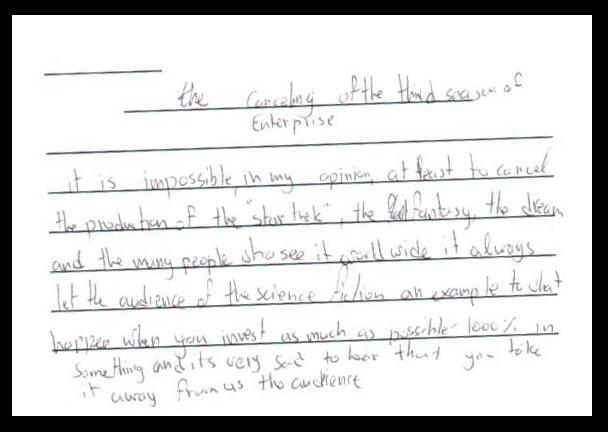 the Canceling of the third season of
Enterprise
it is impossible in my opinion, at least to cancel
the production of the "star trek", the fantasy, the dream
and the many people who see it world wide it always
let the audience of the science fiction an example to what
happen when you invest as much as possible 1000% in
something and its very sad to hear that you take
it away from us the audience